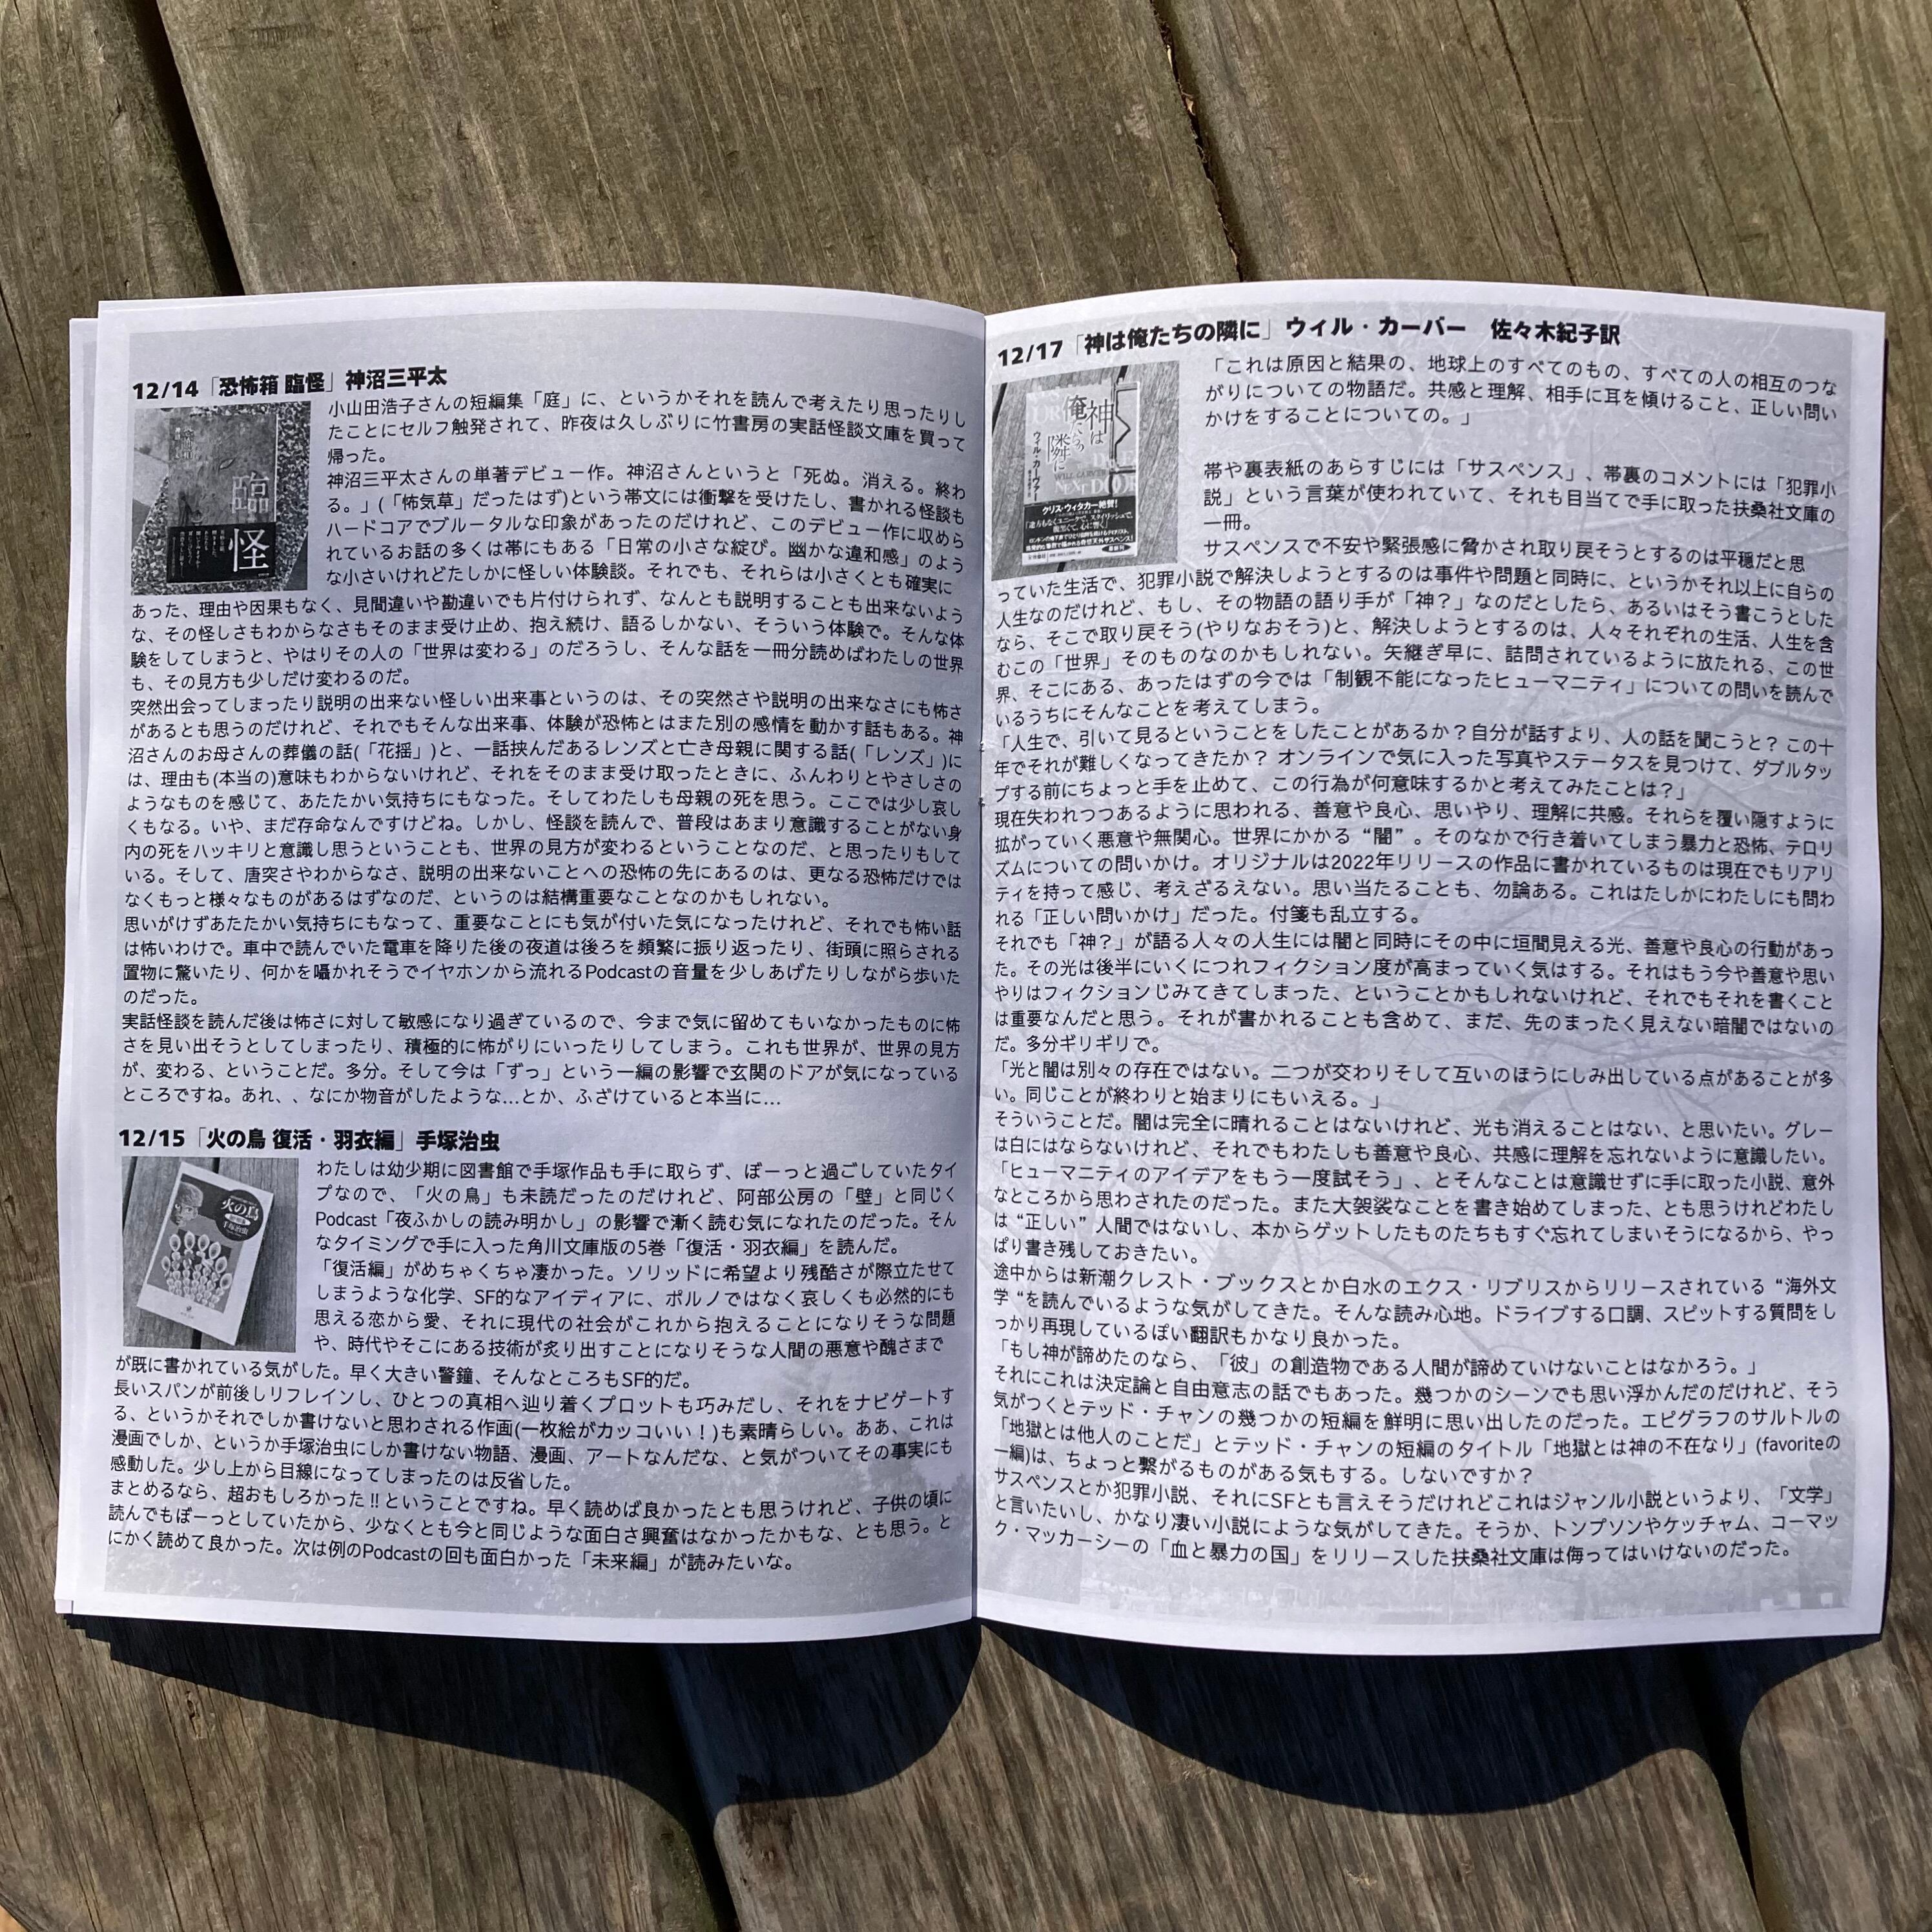 12/14「恐怖箱 臨怪」神沼三平太
小山田浩子さんの短編集「庭」に、というかそれを読んで考えたり思ったりし
たことにセルフ触発されて、昨夜は久しぶりに竹書房の実話怪談文庫を買って
帰った。
神沼三平太さんの単著デビュー作。神沼さんというと「死ぬ。消える。終わ
る。」(「怖気草」だったはず)という帯文には衝撃を受けたし、書かれる怪談も
ハードコアでブルータルな印象があったのだけれど、このデビュー作に収めら
れているお話の多くは帯にもある「日常の小さな綻び。幽かな違和感」のよう
な小さいけれどたしかに怪しい体験談。それでも、それらは小さくとも確実に
あった、理由や因果もなく、見間違いや勘違いでも片付けられず、なんとも説明することも出来ないよう
な、その怪しさもわからなさもそのまま受け止め、抱え続け、語るしかない、そういう体験で。そんな体
験をしてしまうと、やはりその人の「世界は変わる」のだろうし、そんな話を一冊分読めばわたしの世界
も、その見方も少しだけ変わるのだ。
突然出会ってしまったり説明の出来ない怪しい出来事というのは、その突然さや説明の出来なさにも怖さ
があるとも思うのだけれど、それでもそんな出来事、体験が恐怖とはまた別の感情を動かす話もある。神
沼さんのお母さんの葬儀の話(「花揺」)と、一話挟んだあるレンズと亡き母親に関する話(「レンズ」)に
は、理由も(本当の)意味もわからないけれど、それをそのまま受け取ったときに、ふんわりとやさしさの
ようなものを感じて、あたたかい気持ちにもなった。そしてわたしも母親の死を思う。ここでは少し哀し
くもなる。いや、まだ存命なんですけどね。しかし、怪談を読んで、普段はあまり意識することがない身
内の死をハッキリと意識し思うということも、世界の見方が変わるということなのだ、と思ったりもして
いる。そして、唐突さやわからなさ、説明の出来ないことへの恐怖の先にあるのは、更なる恐怖だけでは
なくもっと様々なものがあるはずなのだ、というのは結構重要なことなのかもしれない。
思いがけずあたたかい気持ちにもなって、重要なことにも気が付いた気になったけれど、それでも怖い話
は怖いわけで。車中で読んでいた電車を降りた後の夜道は後ろを頻繁に振り返ったり、街頭に照らされる
置物に驚いたり、何かを囁かれそうでイヤホンから流れるPodcastの音量を少しあげたりしながら歩いた
のだった。
実話怪談を読んだ後は怖さに対して敏感になり過ぎているので、今まで気に留めてもいなかったものに怖
さを見い出そうとしてしまったり、積極的に怖がりにいったりしてしまう。これも世界が、世界の見方
が、変わる、ということだ。多分。そして今は「ずっ」という一編の影響で玄関のドアが気になっている
ところですね。あれ、、なにか物音がしたような…とか、ふざけていると本当に…
12/15「火の鳥 復活・羽衣編」手塚治虫
わたしは幼少期に図書館で手塚作品も手に取らず、ぼーっと過ごしていたタイ
プなので、「火の鳥」も未読だったのだけれど、阿部公房の「壁」と同じく
Podcast「夜ふかしの読み明かし」の影響で漸く読む気になれたのだった。そん
なタイミングで手に入った角川文庫版の5巻「復活・羽衣編」を読んだ。
「復活編」がめちゃくちゃ凄かった。ソリッドに希望より残酷さが際立たせて
しまうような化学、SF的なアイディアに、ポルノではなく哀しくも必然的にも
思える恋から愛、それに現代の社会がこれから抱えることになりそうな問題
や、時代やそこにある技術が炙り出すことになりそうな人間の悪意や醜さまで
が既に書かれている気がした。早く大きい警鐘、そんなところもSF的だ。
長いスパンが前後しリフレインし、ひとつの真相へ辿り着くプロットも巧みだし、それをナビゲートす
る、というかそれでしか書けないと思わされる作画(一枚絵がカッコいい！)も素晴らしい。ああ、これは
漫画でしか、というか手塚治虫にしか書けない物語、漫画、アートなんだな、と気がついてその事実にも
感動した。少し上から目線になってしまったのは反省した。
まとめるなら、超おもしろかった!!ということですね。早く読めば良かったとも思うけれど、子供の頃に
読んでもぼーっとしていたから、少なくとも今と同じような面白さ興奮はなかったかもな、とも思う。と
にかく読めて良かった。次は例のPodcastの回も面白かった「未来編」が読みたいな。
12/17「神は俺たちの隣に」ウィル・カーバー　佐々木紀子訳
「これは原因と結果の、地球上のすべてのもの、すべての人の相互のつな
がりについての物語だ。共感と理解、相手に耳を傾けること、正しい問い
かけをすることについての。」
帯や裏表紙のあらすじには「サスペンス」、帯裏のコメントには「犯罪小
説」という言葉が使われていて、それも目当てで手に取った扶桑社文庫の
一冊。
サスペンスで不安や緊張感に脅かされ取り戻そうとするのは平穏だと思
っていた生活で、犯罪小説で解決しようとするのは事件や問題と同時に、というかそれ以上に自らの
人生なのだけれど、もし、その物語の語り手が「神？」なのだとしたら、あるいはそう書こうとした
なら、そこで取り戻そう(やりなおそう)と、解決しようとするのは、人々それぞれの生活、人生を含
むこの「世界」そのものなのかもしれない。矢継ぎ早に、詰問されているように放たれる、この世
界、そこにある、あったはずの今では「制観不能になったヒューマニティ」についての問いを読んで
いるうちにそんなことを考えてしまう。
「人生で、引いて見るということをしたことがあるか？自分が話すより、人の話を聞こうと？ この十
年でそれが難しくなってきたか？ オンラインで気に入った写真やステータスを見つけて、ダブルタッ
プする前にちょっと手を止めて、この行為が何意味するかと考えてみたことは？」
現在失われつつあるように思われる、善意や良心、思いやり、理解に共感。それらを覆い隠すように
拡がっていく悪意や無関心。世界にかかる“闇”。そのなかで行き着いてしまう暴力と恐怖、テロリ
ズムについての問いかけ。オリジナルは2022年リリースの作品に書かれているものは現在でもリアリ
ティを持って感じ、考えざるえない。思い当たることも、勿論ある。これはたしかにわたしにも問わ
れる「正しい問いかけ」だった。付箋も乱立する。
それでも「神？」が語る人々の人生には闇と同時にその中に垣間見える光、善意や良心の行動があっ
た。その光は後半にいくにつれフィクション度が高まっていく気はする。それはもう今や善意や思い
やりはフィクションじみてきてしまった、ということかもしれないけれど、それでもそれを書くこと
は重要なんだと思う。それが書かれることも含めて、まだ、先のまったく見えない暗闇ではないの
だ。多分ギリギリで。
「光と闇は別々の存在ではない。二つが交わりそして互いのほうにしみ出している点があることが多
い。同じことが終わりと始まりにもいえる。」
そういうことだ。闇は完全に晴れることはないけれど、光も消えることはない、と思いたい。グレー
は白にはならないけれど、それでもわたしも善意や良心、共感に理解を忘れないように意識したい。
「ヒューマニティのアイデアをもう一度試そう」、とそんなことは意識せずに手に取った小説、意外
なところから思わされたのだった。また大袈裟なことを書き始めてしまった、とも思うけれどわたし
は“正しい”人間ではないし、本からゲットしたものたちもすぐ忘れてしまいそうになるから、やっ
ぱり書き残しておきたい。
途中からは新潮クレスト・ブックスとか白水のエクス・リブリスからリリースされている“海外文
学“を読んでいるような気がしてきた。そんな読み心地。ドライブする口調、スピットする質問をし
っかり再現しているぽい翻訳もかなり良かった。
「もし神が諦めたのなら、「彼」の創造物である人間が諦めていけないことはなかろう。」
それにこれは決定論と自由意志の話でもあった。幾つかのシーンでも思い浮かんだのだけれど、そう
気がつくとテッド・チャンの幾つかの短編を鮮明に思い出したのだった。エピグラフのサルトルの
「地獄とは他人のことだ」とテッド・チャンの短編のタイトル「地獄とは神の不在なり」(favoriteの
一編)は、ちょっと繋がるものがある気もする。しないですか？
サスペンスとか犯罪小説、それにSFとも言えそうだけれどこれはジャンル小説というより、「文学」
と言いたいし、かなり凄い小説にような気がしてきた。そうか、トンプソンやケッチャム、コーマッ
ク・マッカーシーの「血と暴力の国」をリリースした扶桑社文庫は侮ってはいけないのだった。
臨
怪
火の鳥
手塚治虫
神は
俺たちの
隣に
ウィル・カーヴァー
クリス・ウィタカー絶賛！